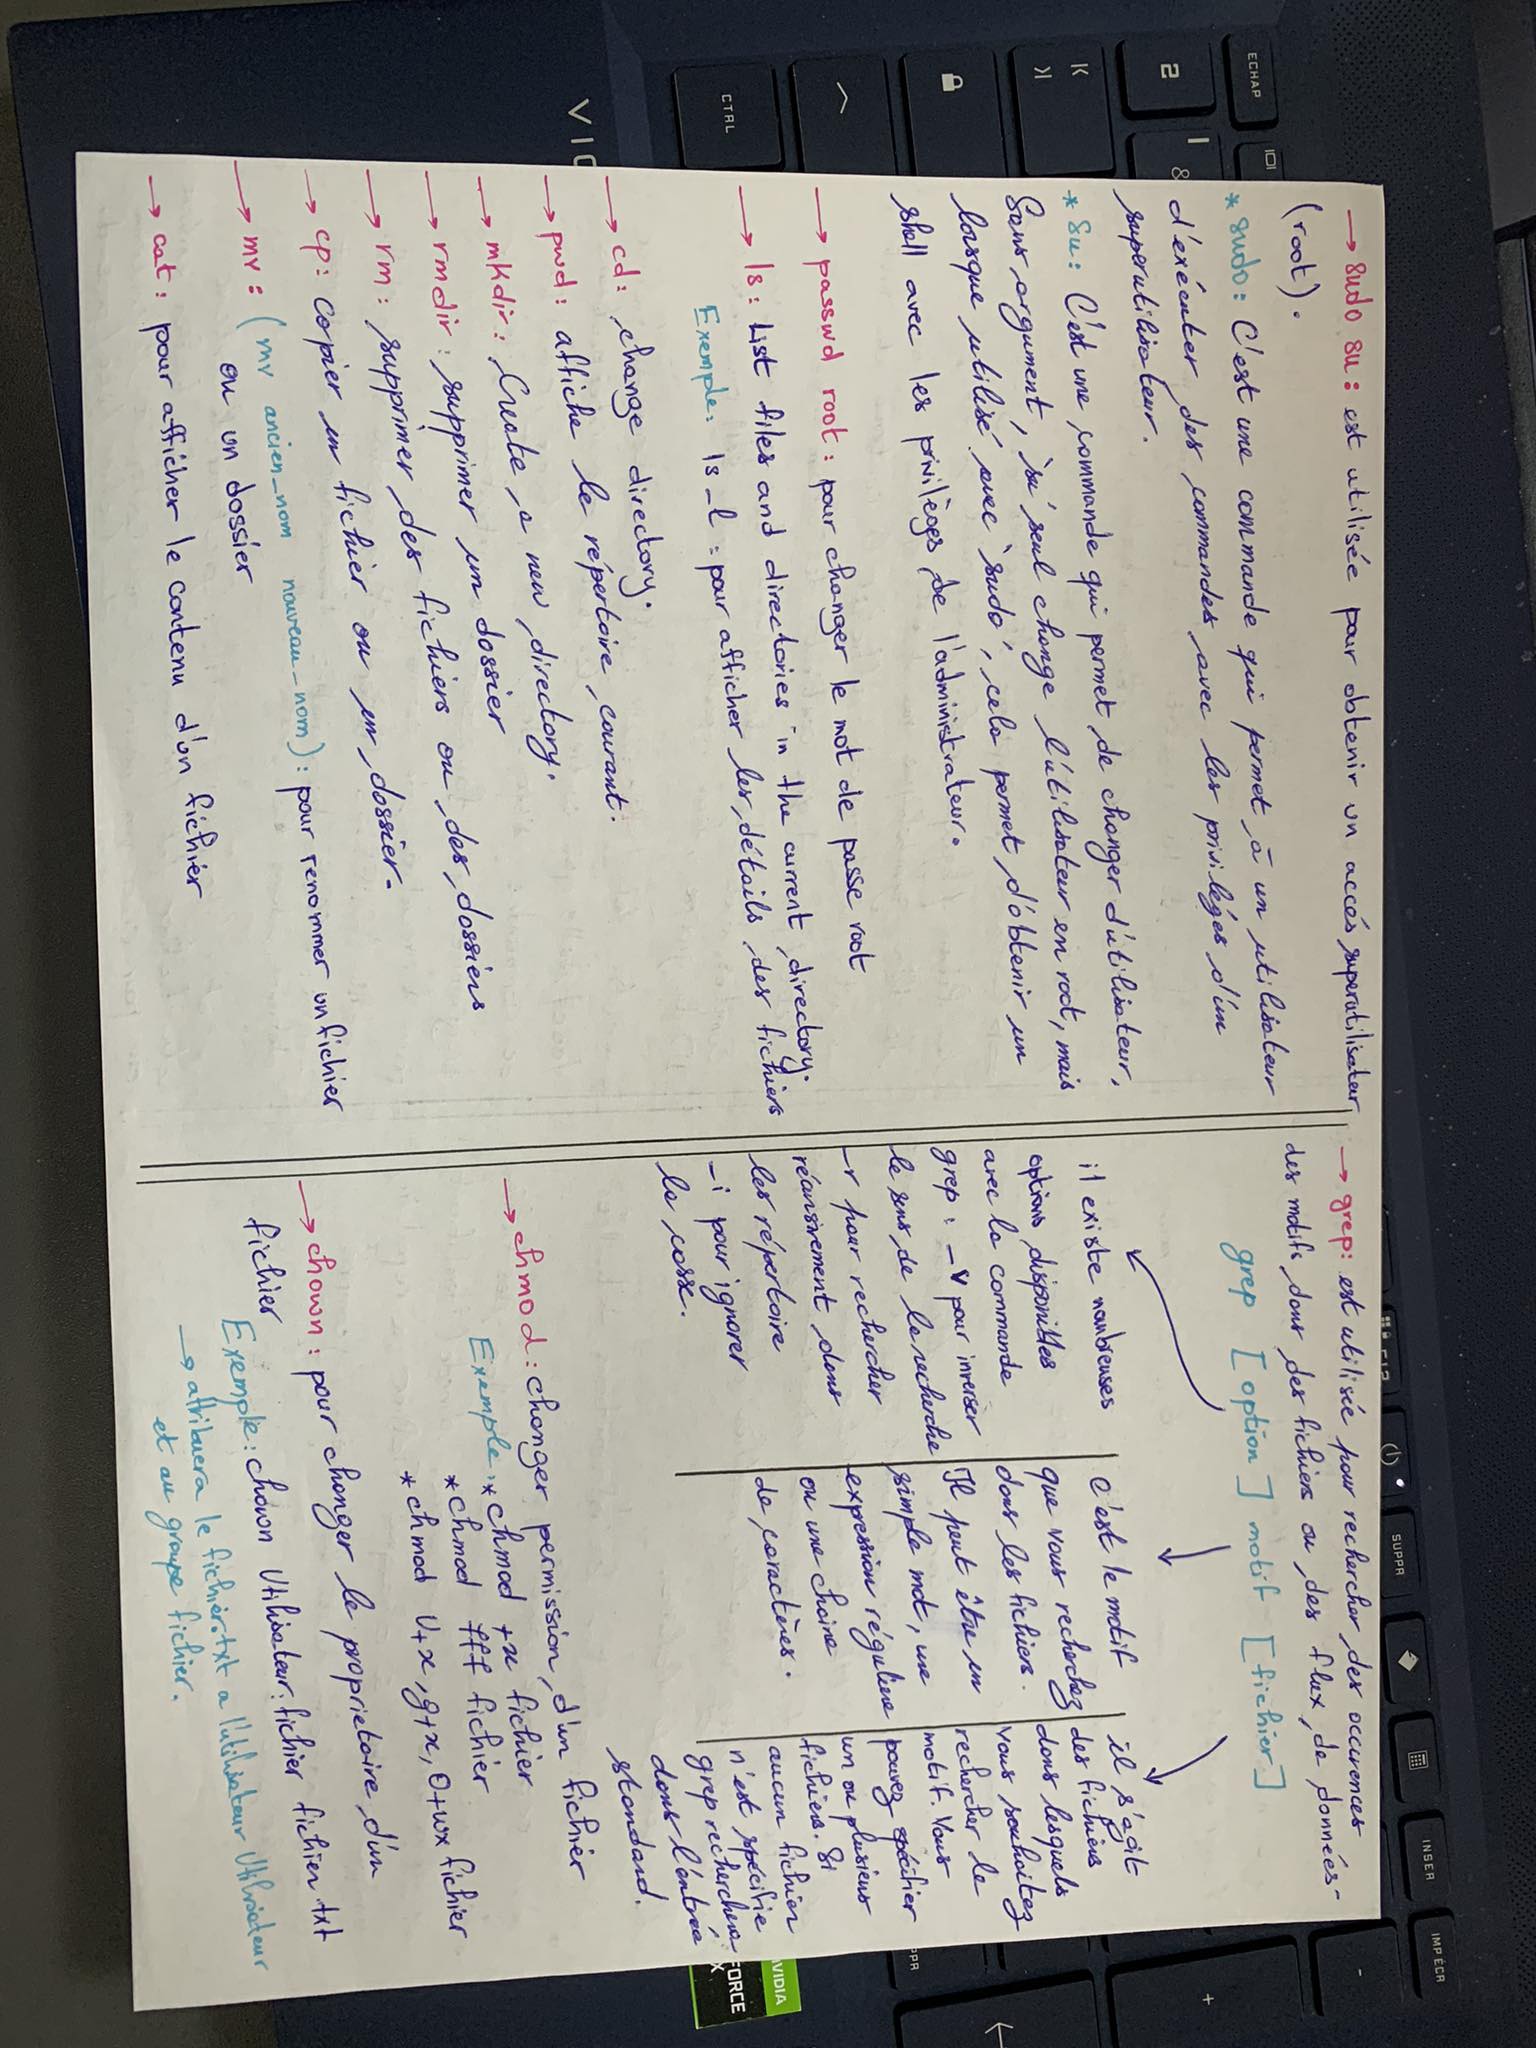 → sudo su : est utilisée pour obtenir un accés superutilisateur
(root).
* sudo : C'est une commande qui permet à un utilisateur
d'exécuter des commandes avec les priviléges d'un
superutilisateur.
* Su : C'est une commande qui permet de changer d'utilisateur,
Sans argument, `su` seul change l'utilisateur en root, mais
lorsque utilisé avec `sudo`, cela permet d'obtenir un
shell avec les privilèges de l'administrateur.
→ passwd root : pour changer le mot de passe root
→ ls : List files and directories in the current directory.
Exemple : ls -l : pour afficher les détails des fichiers
→ cd : change directory.
→ pwd : affiche le répertoire courant.
→ mkdir : Create a new directory.
→ rmdir : supprimer un dossier
→ rm : supprimer des fichiers ou des dossiers
→ cp : copier un fichier ou un dossier.
→ mv : (mv ancien_nom nouveau_nom) : pour renommer un fichier
ou un dossier
→ cat : pour afficher le contenu d'un fichier
→ grep : est utilisée pour rechercher des occurences
des motifs dans des fichiers ou des flux de données-
grep [option] motif [fichier]
il existe nombreuses
options disponibles
avec la commande
grep : -v pour inverser
le sens de la recherche
-r pour rechercher
récursivement dans
les répertoire
-i pour ignorer
la casse.
c'est le motif
que vous recherchez
dans les fichiers.
Il peut être un
simple mot, une
expression régulière
ou une chaine
de caractères.
il s'agit
des fichiers
dans lesquels
vous souhaitez
rechercher le
motif. Vous
pouvez spécifier
un ou plusieurs
fichiers. Si
aucun fichier
n'est spécifie
grep recherchera
dans l'entrée
standard.
→ chmod : changer permission d'un fichier
Exemple : * chmod +x fichier
* chmod 777 fichier
* chmod U+x, g+x, O+wx fichier
→ chown : pour changer le proprietaire d'un
fichier
Exemple : chown Utilisateur:fichier fichier.txt
→ attribuera le fichier.txt a l'utilisateur Utilisateur
et au groupe fichier.
ECHAP
2
&
K
CTRL
VIC
SUPPR
INSER
IMP ÉCR
-
+
VIDIA
FORCE
X